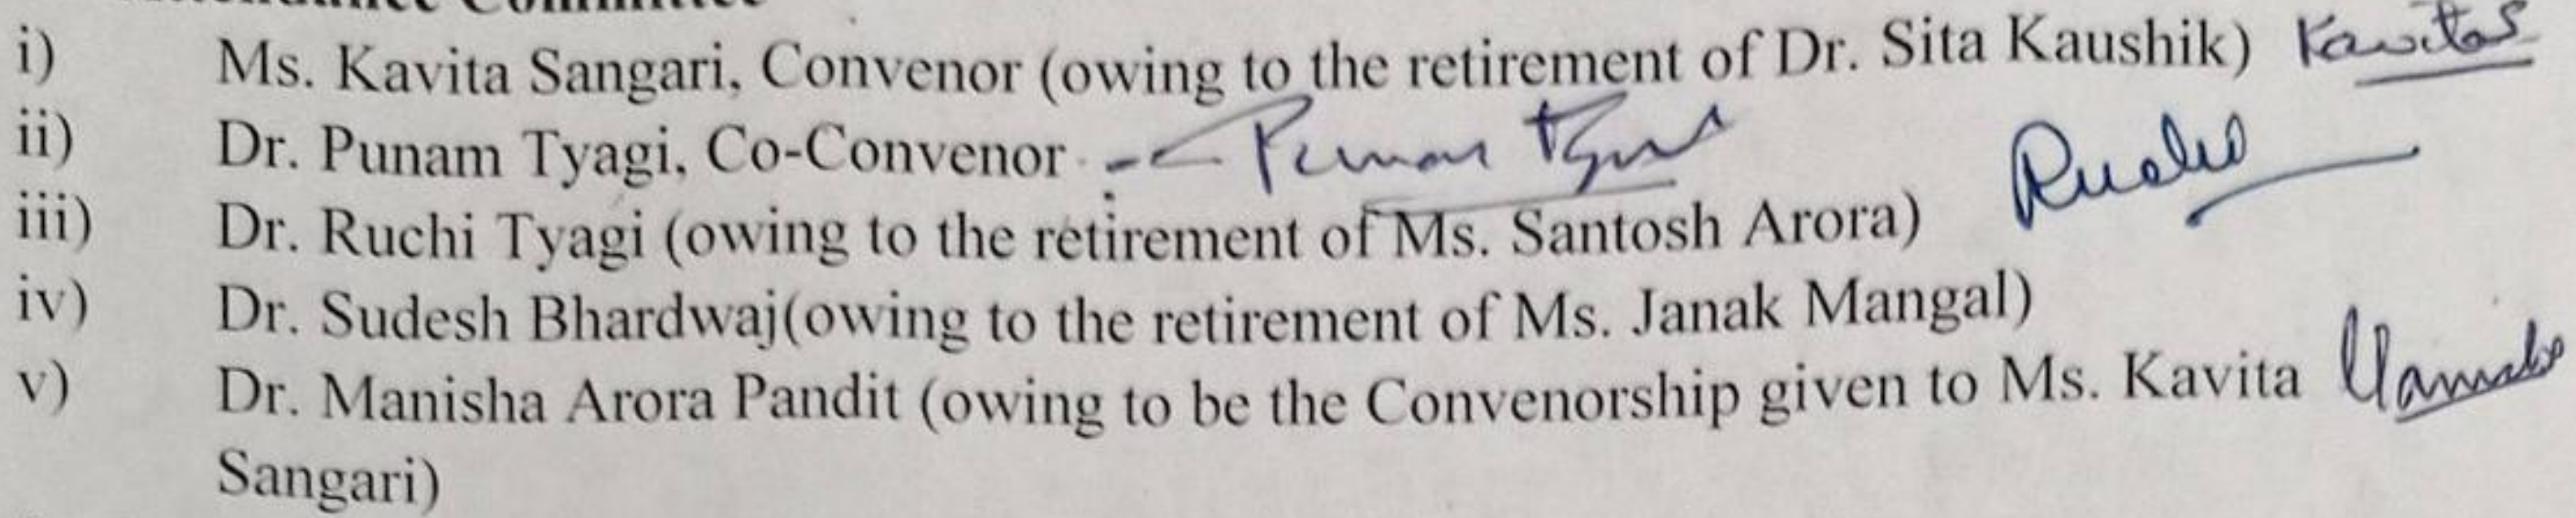 Attendance Committee
i) Ms. Kavita Sangari, Convenor (owing to the retirement of Dr. Sita Kaushik) Kavitas
ii) Dr. Punam Tyagi, Co-Convenor - Punam Tyagi
iii) Dr. Ruchi Tyagi (owing to the retirement of Ms. Santosh Arora) Ruchi
iv) Dr. Sudesh Bhardwaj(owing to the retirement of Ms. Janak Mangal)
v) Dr. Manisha Arora Pandit (owing to be the Convenorship given to Ms. Kavita
Sangari)